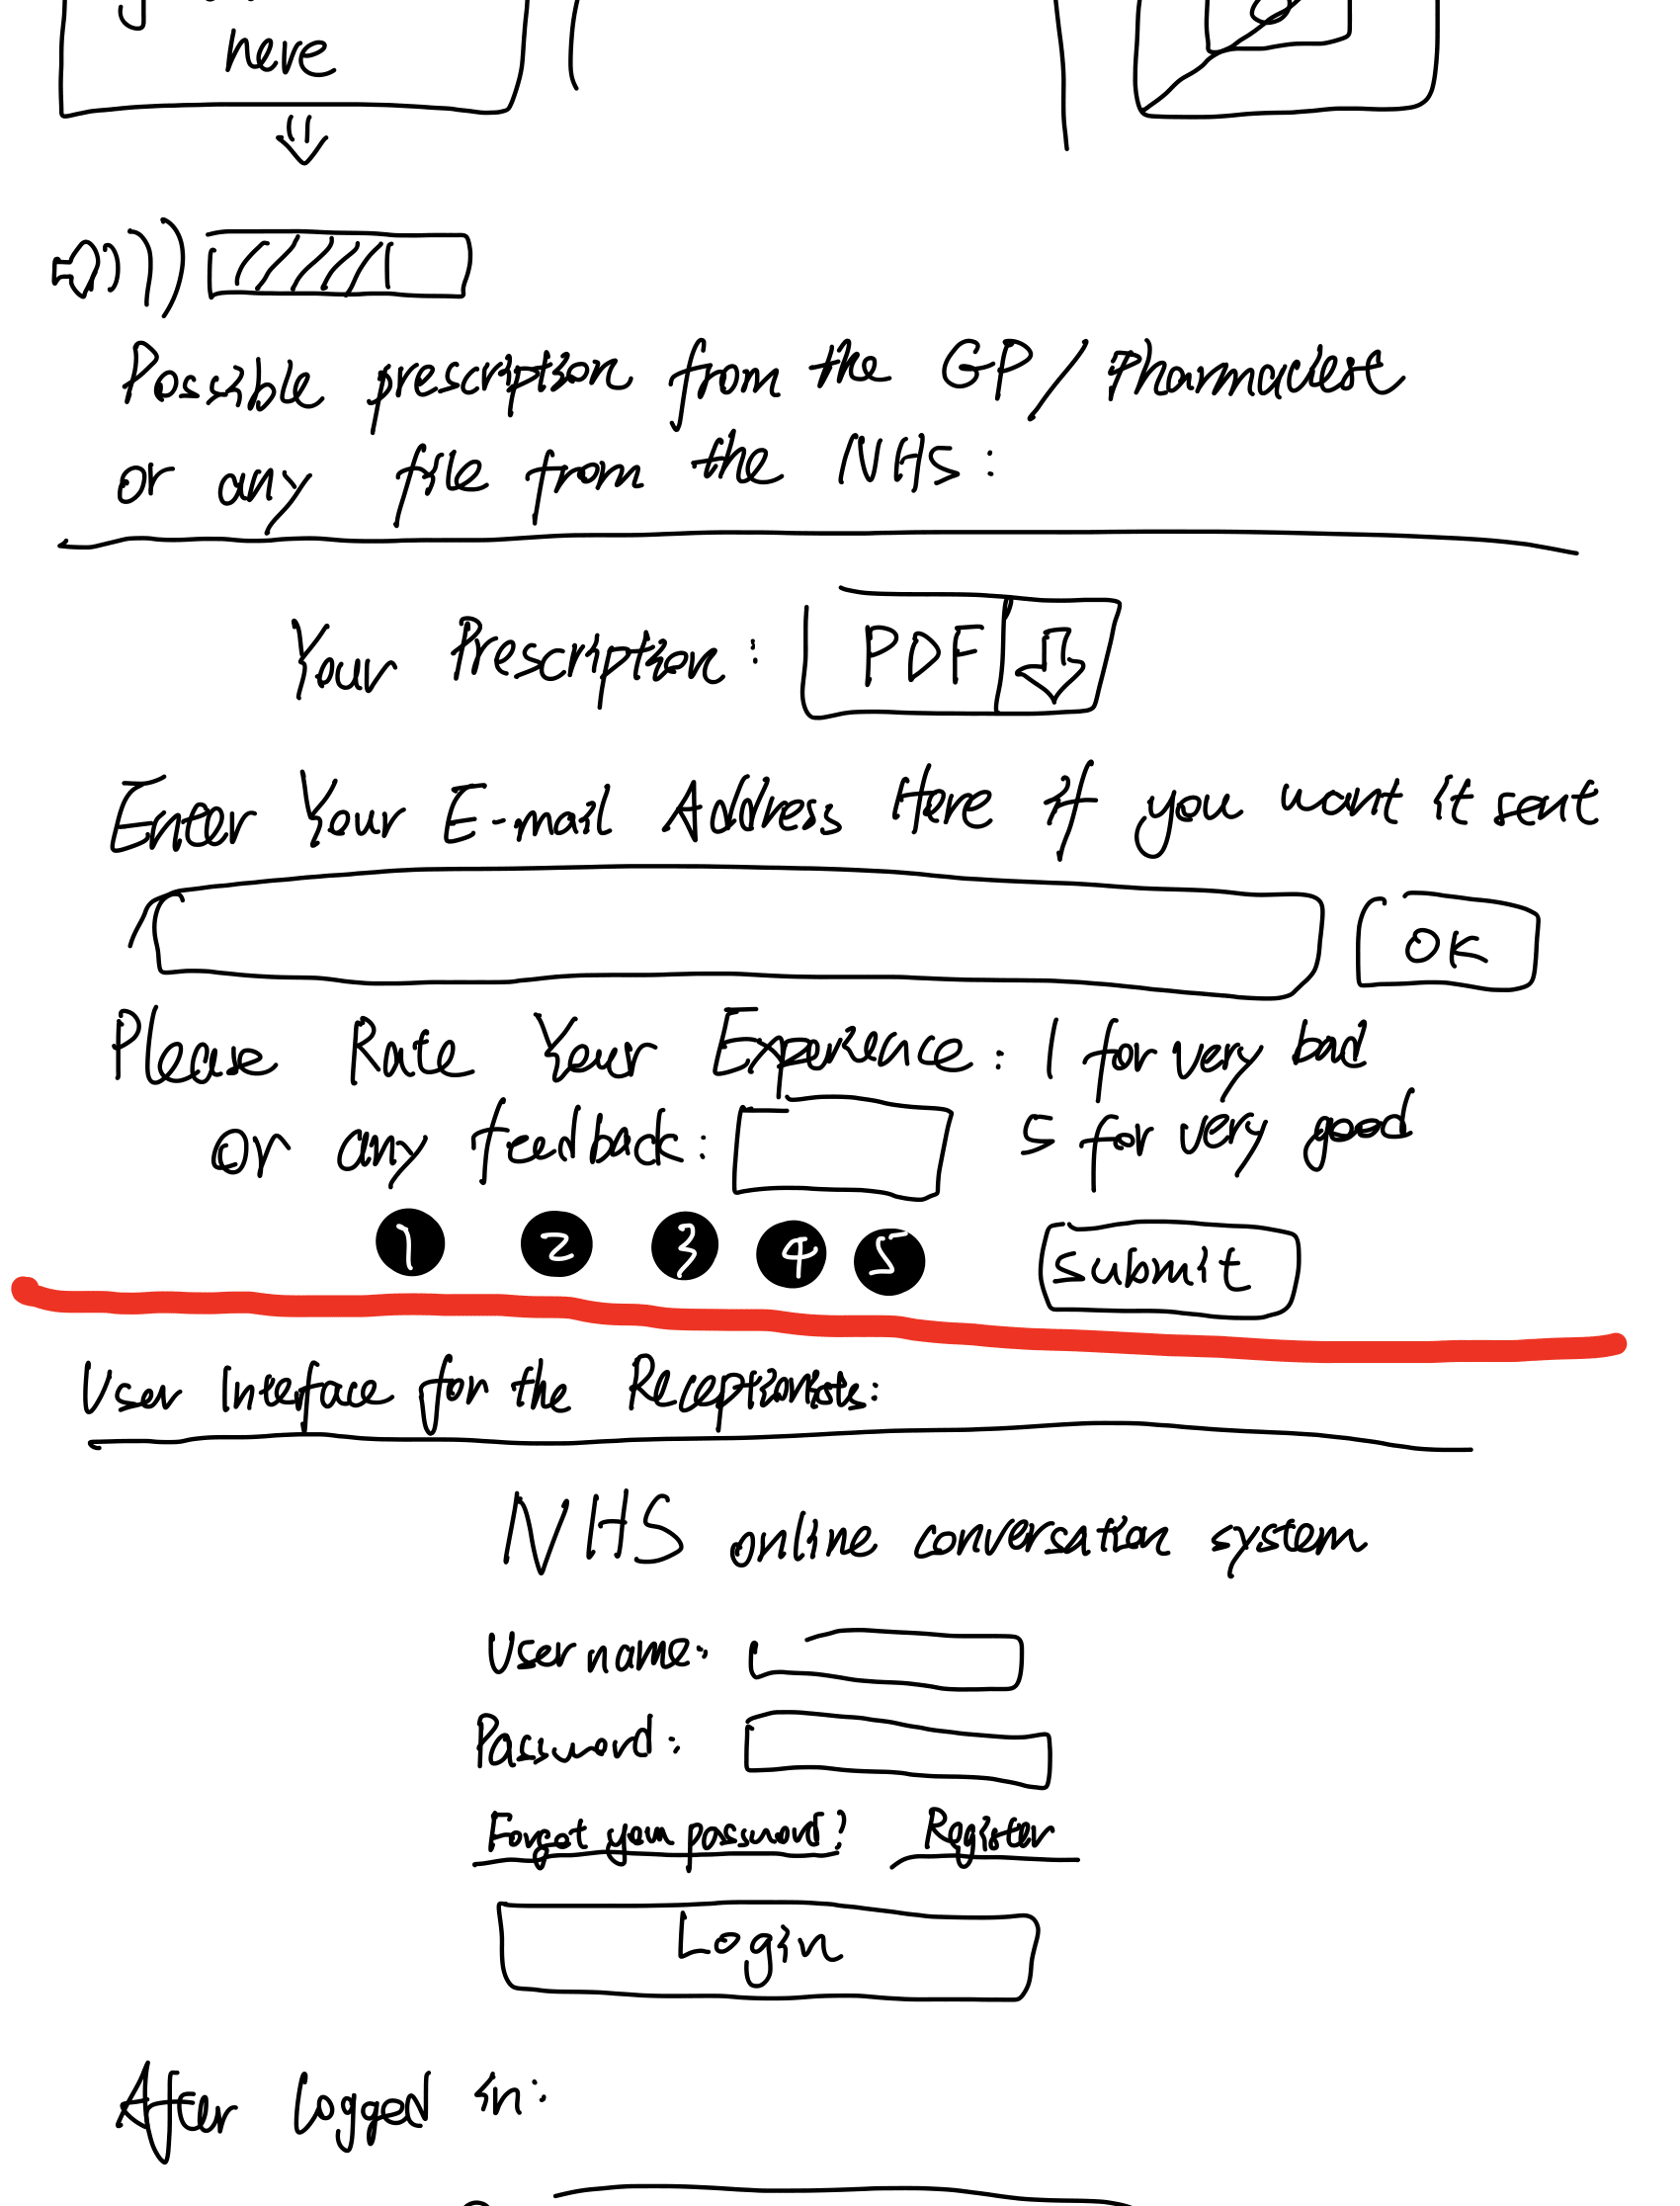 here
Possible prescription from the GP/Pharmacist
or any file from the NHS:
Your Prescription: PDF
Enter Your E-mail Address Here if you want it sent
OK
Please Rate Your Experience: 1 for very bad
or any feedback: 5 for very good
1 2 3 4 5 submit
User Interface for the Receptionists:
NHS online conversation system
User name:
Password:
Forgot your password? Register
Login
After logged in: